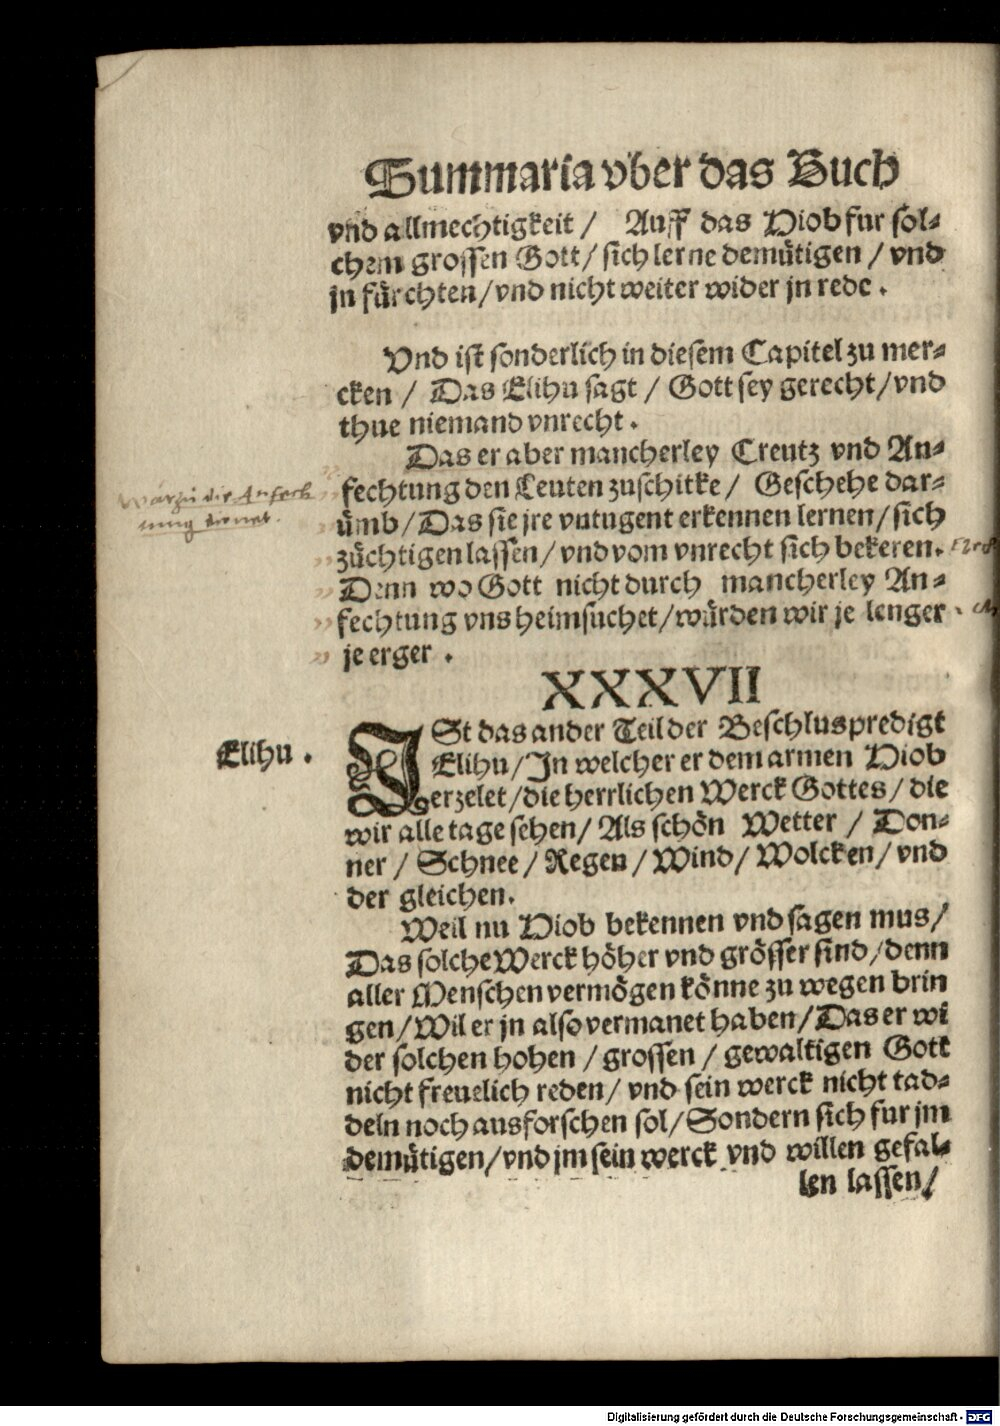 Summaria vber das Buch
vnd allmechtigkeit / Auff das Hiob fur sol⸗
chem grossen Gott / sich lerne demütigen / vnd
jn fürchten / vnd nicht weiter wider jn rede .
Vnd ist sonderlich in diesem Capitel zu mer⸗
cken / Das Elihu sagt / Gott sey gerecht / vnd
thue niemand vnrecht .
Das er aber mancherley Creutz vnd An⸗
fechtung den Leuten zuschitke / Geschehe dar⸗
ümb / Das sie jre vntugent erkennen lernen / sich
züchtigen lassen / vnd vom vnrecht sich bekeren.
Denn wo Gott nicht durch mancherley An⸗
fechtung vns heimsuchet / würden wir je lenger
je erger .
Warzu die Anfech
tung dienet.
XXXVII
Elihu .
ISt das ander Teil der Beschluspredigt
Elihu / In welcher er dem armen Hiob
erzelet / die herrlichen Werck Gottes / die
wir alle tage sehen / Als schön Wetter / Don⸗
ner / Schnee / Regen / Wind / Wolcken / vnd
der gleichen.
Weil nu Hiob bekennen vnd sagen mus /
Das solche Werck höher vnd grösser sind / denn
aller Menschen vermögen könne zu wegen brin
gen / Wil er jn also vermanet haben / Das er wi
der solchen hohen / grossen / gewaltigen Gott
nicht freuelich reden / vnd sein werck nicht tad⸗
deln noch ausforschen sol / Sondern sich fur jm
demütigen / vnd jm sein werck vnd willen gefal⸗
len lassen /
Digitalisierung gefördert durch die Deutsche Forschungsgemeinschaft - DFG